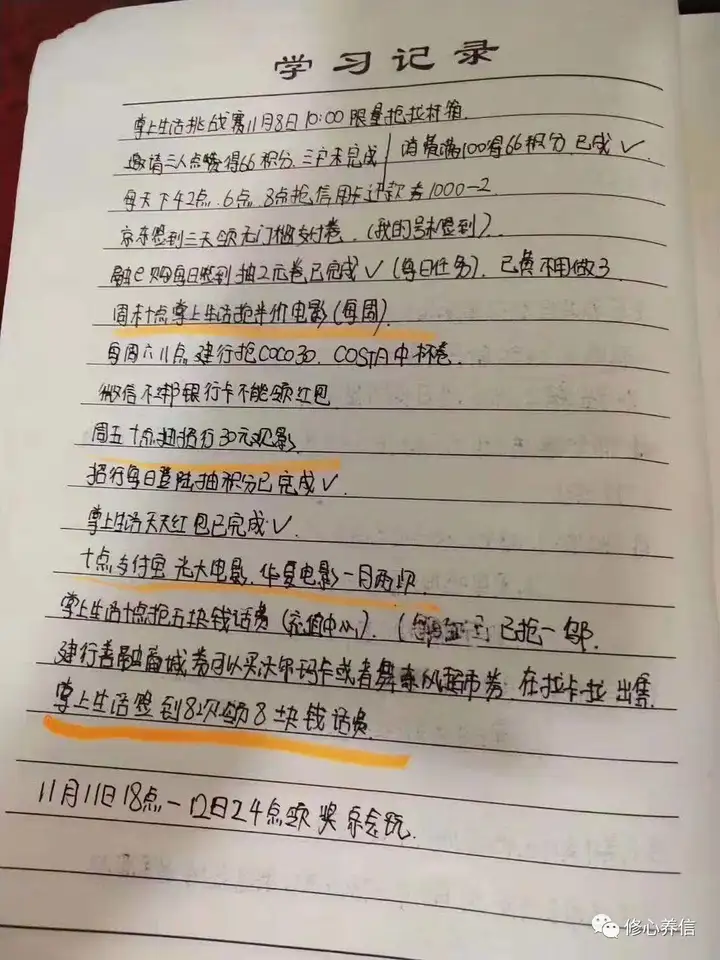 学习记录
掌上生活挑战赛11月8日10:00限量抢拉杆箱.
邀请三人点赞得66积分.三户未完成 | 消费满100得66积分.已成✓.
每天下午2点.6点.8点抢信用卡还款券1000-2.
京东签到三天领无门槛支付卷.(我的号未签到).
融e购每日签到抽2元卷已完成✓(每日任务).已费不用做了.
周末十点掌上生活抢半价电影(每周).
每周六11点建行抢COCO30.COSTA中杯卷.
微信不绑银行卡不能领红包.
周五十点抽招行30元观影.
招行每日登陆抽积分已完成✓.
掌上生活天天红包已完成✓.
十点支付宝光大电影.华夏电影一月两次.
掌上生活十点抢五块钱话费(充值中心).(每周 ) 已抢一部.
建行善融商城券可以买沃尔玛卡或者 超市券.在拉卡拉出售.
掌上生活签到8次领8块钱话费.
11月11日18点-12日24点领奖京会玩.
修心养信